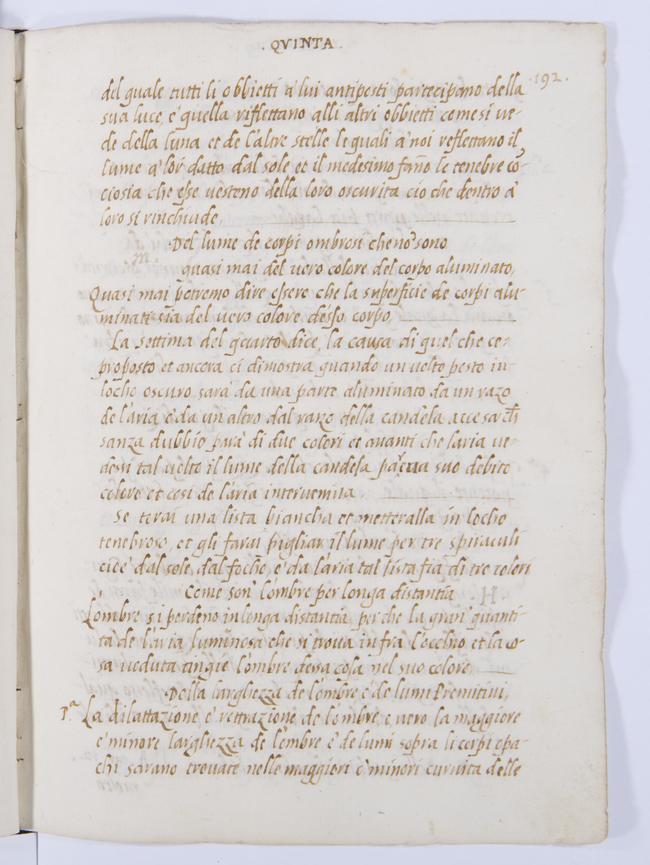 . QVINTA .
192.
del quale tutti li obbietti a' lui antiposti partecipano della
sua luce, e' quella riflettano alli altri obbietti come si ve-
de della luna et de l'altre stelle le quali a' noi reflettano il
lume a' lor' datto dal sole et il medesimo fañ le tenebre cõ-
ciosia che esse vesteno della loro oscurita cio che dentro a'
loro si rinchiude
Del lume de corpi ombrosi che nõ sono
quasi mai del vero colore del corpo aluminato,
Quasi mai potremo dire essere che la superficie de corpi alu-
minati sia del vero colore d'esso corpo,
La settima del quarto dice, la causa di quel che ce-
proposto et ancora ci dimostra quando un volto posto in
locho oscuro sara da una parte aluminato da un razo
de l'aria e' da un altro dal razzo della candela accesa
sanza dubbio parã di due colori et auanti che laria ve-
dessi tal volto il lume della candela parea suo debito
colore et cosi de l'aria interuenina
Se torai una lista biancha et metteralla in locho
tenebroso, et gli farai pigliar, il lume per tre spiraculi
cioè dal sole, dal focho, e' da l'aria tal lista fia, di tre colori
Come son' l'ombre per longa distantia
Lombre si perdeno in longa distantia, per che la gran' quanti-
ta de l'aria luminosa che si trova in fra l'occhio et la co-
sa veduta tingie l'ombre dessa cosa nel suo colore
Della larghezza de lombre e' de lumi Premitivi,
Pª La dilattazione e' rettrazione de lombre, e vero la maggiore
e' minore larghezza de l'ombre e' de lumi sopra li corpi opa-
chi sarano trovate nelle maggiori e' minori curvita delle